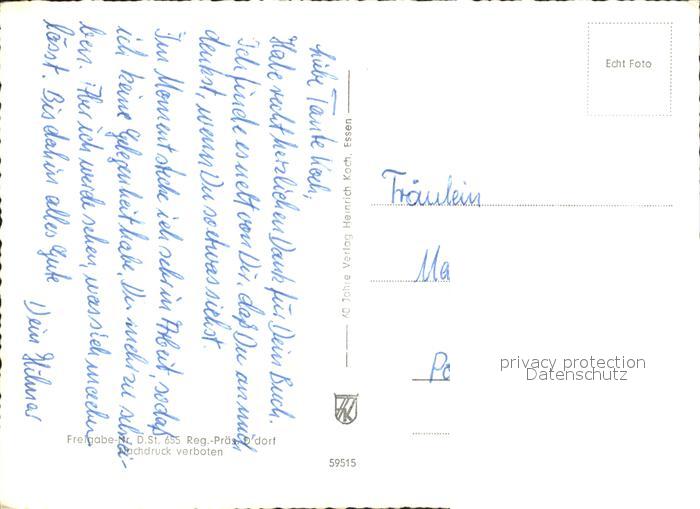 Liebe Tante Koch,
Habe recht herzlichen Dank für Dein Buch.
Ich finde es nett von Dir, daß Du an mich
denkst, wenn Du so etwas siehst.
Im Moment stecke ich sehr in Arbeit, sodaß
ich keine Gelegenheit habe, Dir mehr zu schrei-
ben. Aber ich werde sehen, was sich machen
lässt. Bis dahin alles Gute
Dein Hilmar
Freigabe-Nr. D.St. 655 Reg.-Präs. D'dorf
Nachdruck verboten
Jahre Verlag Heinrich Koch, Essen
59515
Echt Foto
Fräulein
Ma
Po
privacy protection
Datenschutz